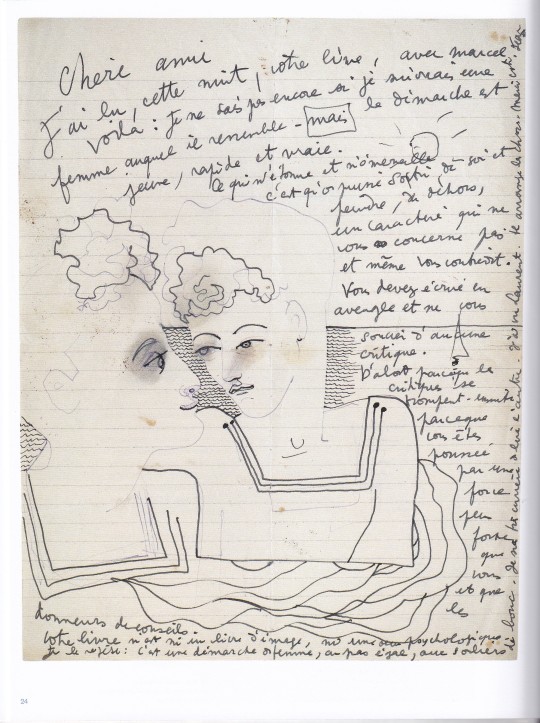 Chère amie
J'ai lu, cette nuit, votre livre, avec marcel
voilà : Je ne sais pas encore si je suivrais une
femme auquel il ressemble - mais la démarche est
jeune, rapide et vraie.
Ce qui m'étonne et m'émerveille
c'est qu'on puisse sortir de soi et
peindre, du dehors,
un caractère qui ne
vous concerne pas
et même vous contredit.
Vous devez écrire en
aveugle et ne vous
soucier d'aucune
critique.
D'abord parceque les
critiques se
trompent - ensuite
parceque
vous êtes
poussée
par une
force
plus
forte
que
vous
et que
les
donneurs de conseils.
Votre livre n'est ni un livre d'image, ni une psychologique
Je le répète : C'est une démarche de femme, au pas égal, aux souliers
de bouc.
24